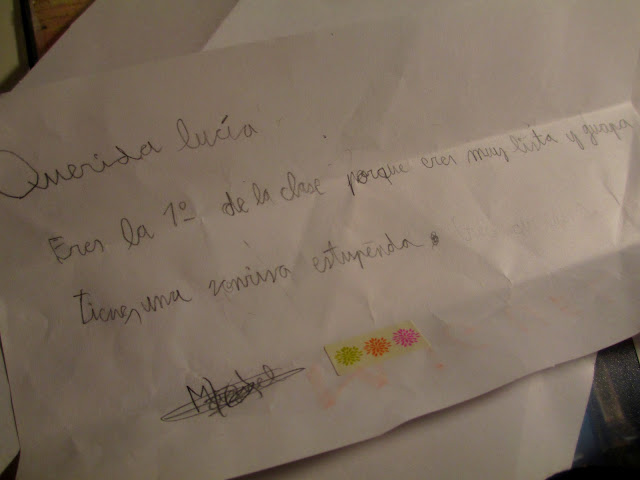 Querida lucía
Eres la 1º de la clase porque eres muy lista y guapa
tienes una sonrisa estupenda